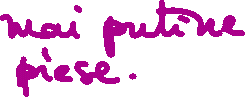 mai putine
piese.